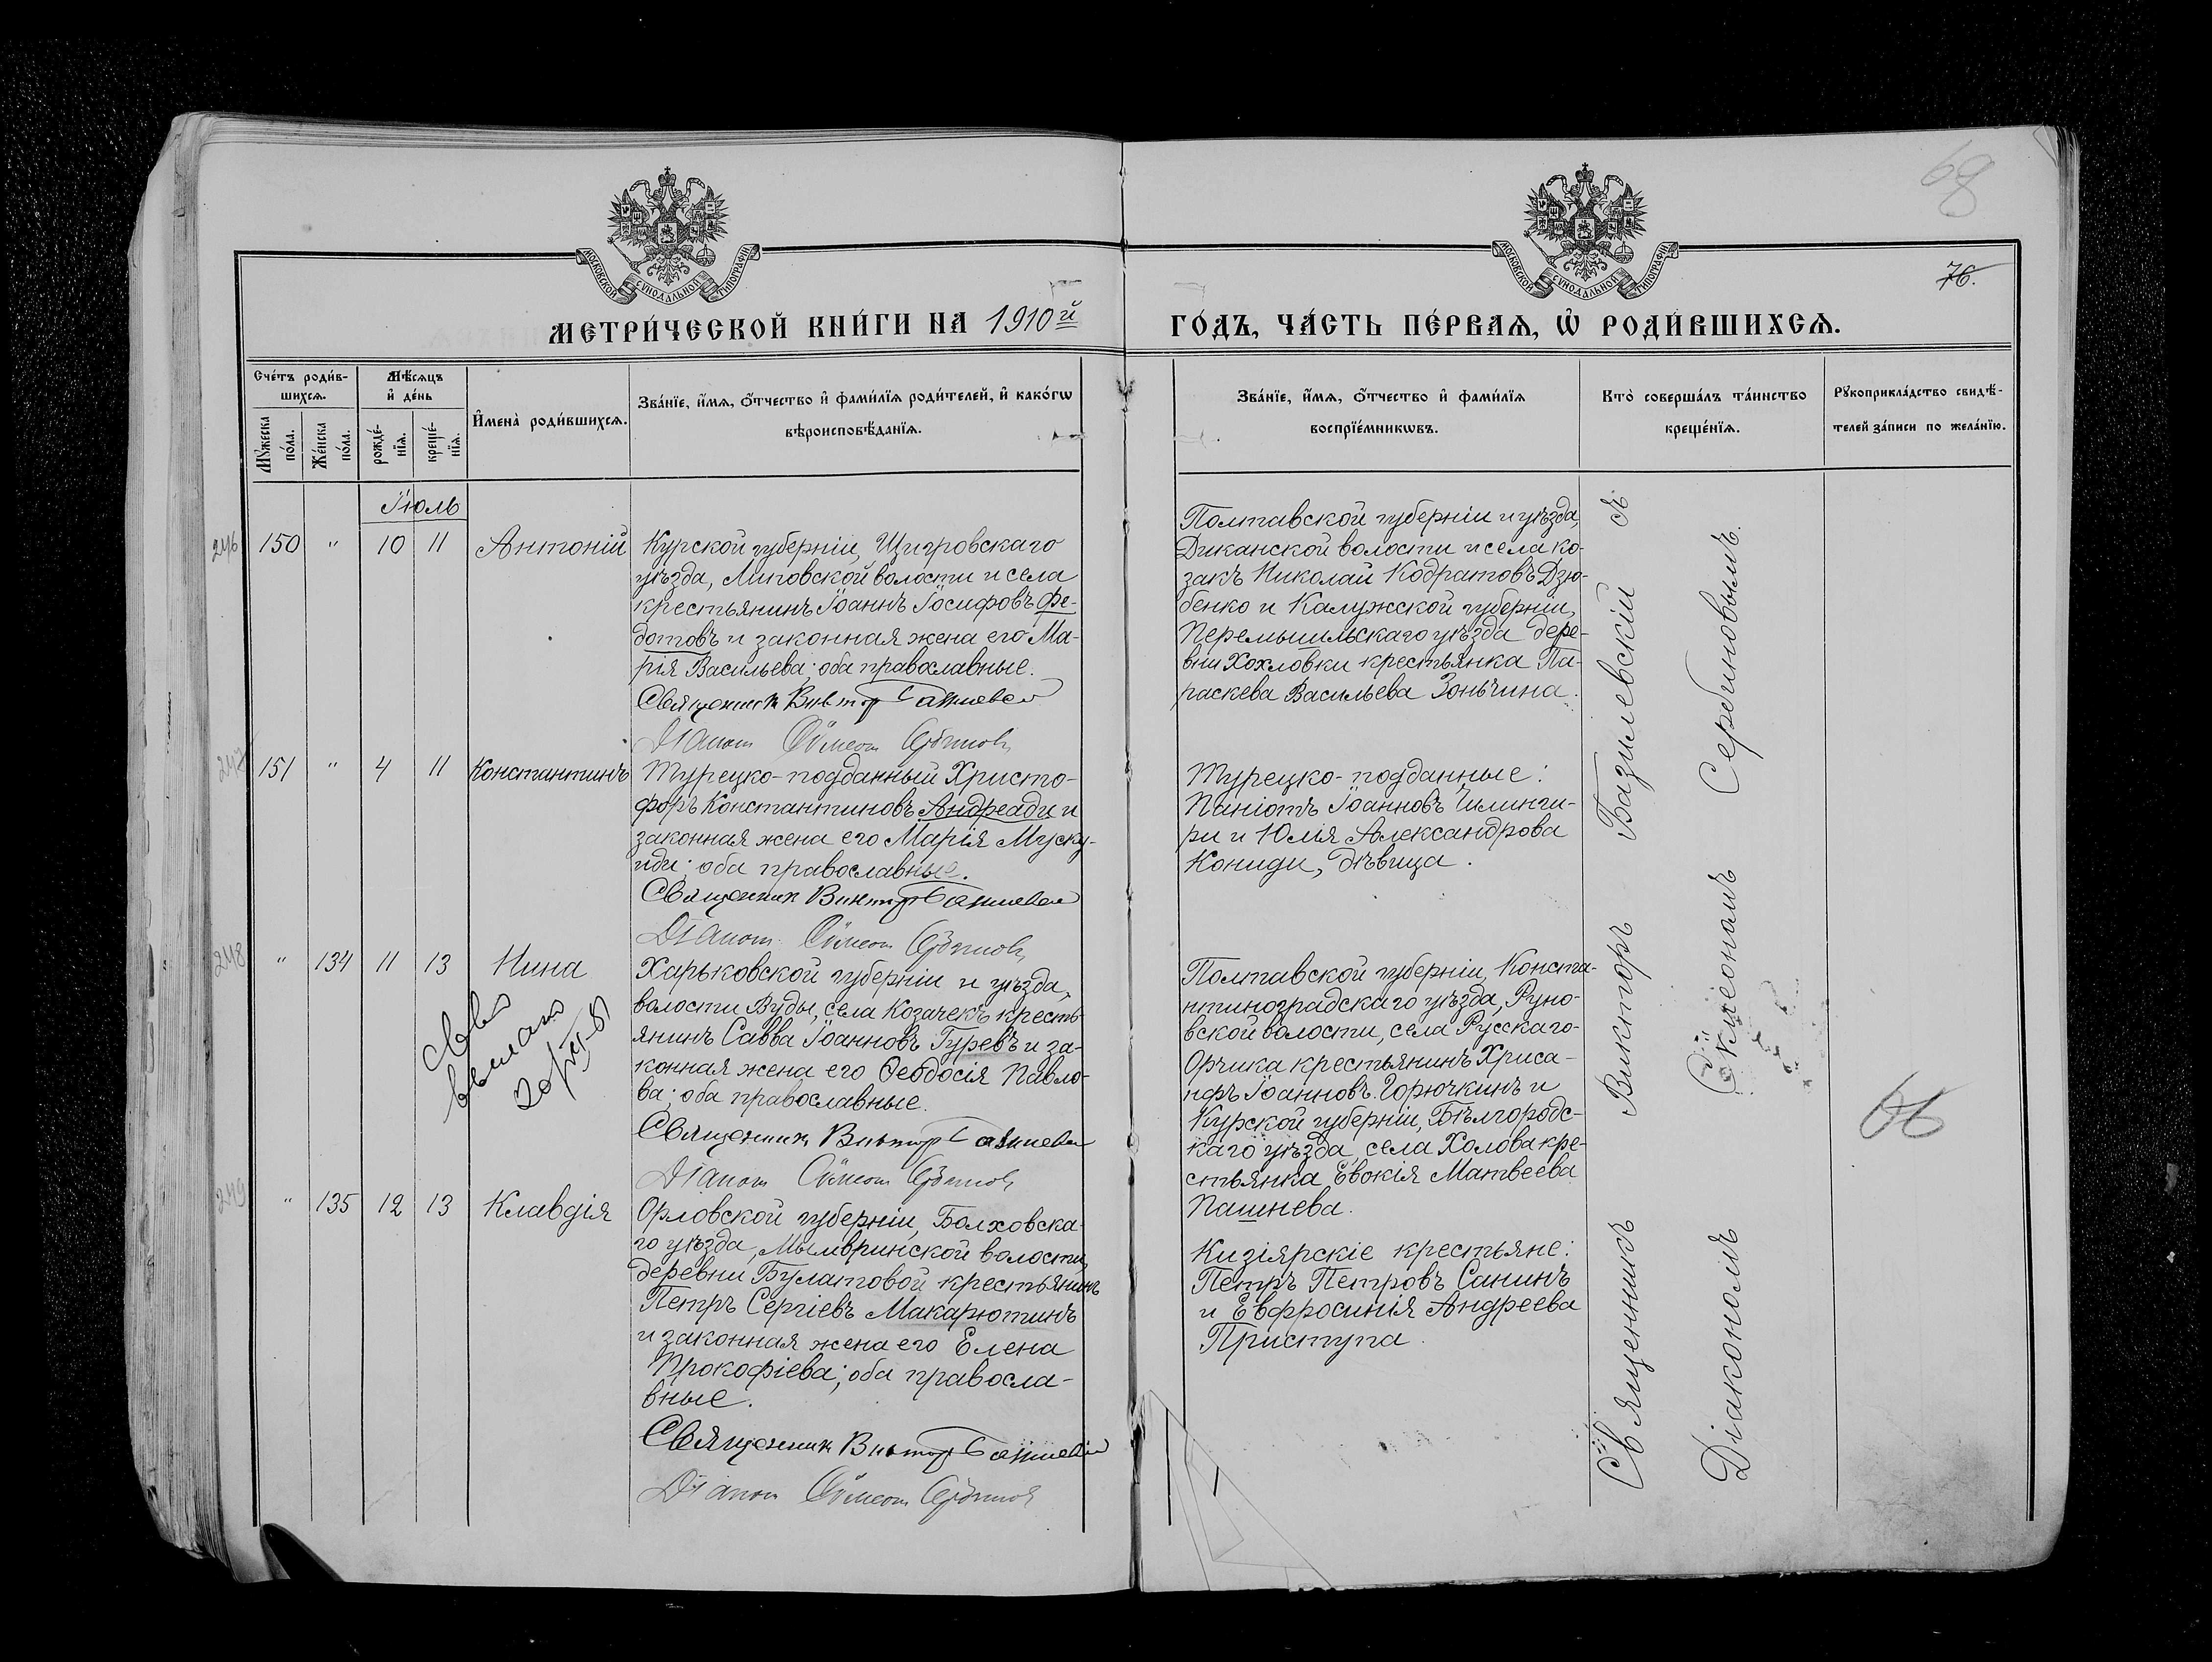 68
76.
МОСКОВСКОЙ СѴНОДАЛЬНОЙ ТИПОГРАФІИ
МОСКОВСКОЙ СѴНОДАЛЬНОЙ ТИПОГРАФІИ
МЕТРИ́ЧЕСКОЙ КНИ́ГИ НА 1910й
ГО́ДЪ, ЧА́СТЬ ПЕ́РВАѦ, Ѡ҆ РОДИ́ВШИХСѦ.
Сче́тъ роди́в-
шихсѧ.
Мꙋ́жеска по́ла.
Же́нска по́ла.
Мѣ́сѧцъ
и҆ де́нь
рожде́-
нїѧ.
креще́-
нїѧ.
И҆мена̀ роди́вшихсѧ.
Зва́нїе, и҆́мѧ, ѻ҆́тчество и҆ фами́лїѧ роди́телей, и҆ како́гѡ
вѣроисповѣ́данїѧ.
Зва́нїе, и҆́мѧ, ѻ҆́тчество и҆ фами́лїѧ
воспрїе́мникѡвъ.
Кто̀ соверша́лъ та́инство
креще́нїѧ.
Рꙋкоприкла́дство свидѣ́-
телей за́писи по жела́нїю.
Іюль
246 150 " 10 11 Антоній
Курской губерніи, Щигровскаго
уѣзда, Липовской волости и села
крестьянинъ Іоаннъ Іосифовъ Фе-
дотовъ и законная жена его Ма-
рія Васильева; оба православные.
Священникъ Викторъ Базилевскій
Діаконъ Сѵмеонъ Сербиновъ
Полтавской губерніи и уѣзда,
Диканской волости и села ко-
закъ Николай Кодратовъ Дзю-
бенко и Калужской губерніи,
Перемышльскаго уѣзда дере-
вни Хохловки крестьянка Па-
раскева Васильева Зоньчина.
247 151 " 4 11 Константинъ
Турецко-подданный Христо-
форъ Константиновъ Андреади и
законная жена его Марія Муску-
иди; оба православные.
Священникъ Викторъ Базилевскій
Діаконъ Сѵмеонъ Сербиновъ
Турецко-подданные:
Паніотъ Іоанновъ Чилинги-
ри и Юлія Александрова
Кониди, дѣвица.
248 " 134 11 13 Нина
Харьковской губерніи и уѣзда,
волости Вуды, села Козачекъ кресть-
янинъ Савва Іоанновъ Гуревъ и за-
конная жена его Ѳеодосія Павло-
ва; оба православные.
Священникъ Викторъ Базилевскій
Діаконъ Сѵмеонъ Сербиновъ
Полтавской губерніи, Конста-
нтиноградскаго уѣзда, Руно-
вской волости, села Русскаго-
Орчика крестьянинъ Хриса-
нфъ Іоанновъ Горючкинъ и
Курской губерніи, Бѣлгородс-
каго уѣзда, села Холова кре-
стьянка Евокія Матвеева
Пашнева.
249 " 135 12 13 Клавдія
Орловской губерніи, Болховска-
го уѣзда, Мымринской волости,
деревни Булатовой крестьянинъ
Петръ Сергіевъ Макарютинъ
и законная жена его Елена
Прокофіева; оба правосла-
вные.
Священникъ Викторъ Базилевскій
Діаконъ Сѵмеонъ Сербиновъ
Кизіярскіе крестьяне:
Петръ Петровъ Санинъ
и Евфросинія Андреева
Приступа.
Священникъ Викторъ Базилевскій съ
Діакономъ Сѵмеономъ Сербиновымъ.
66